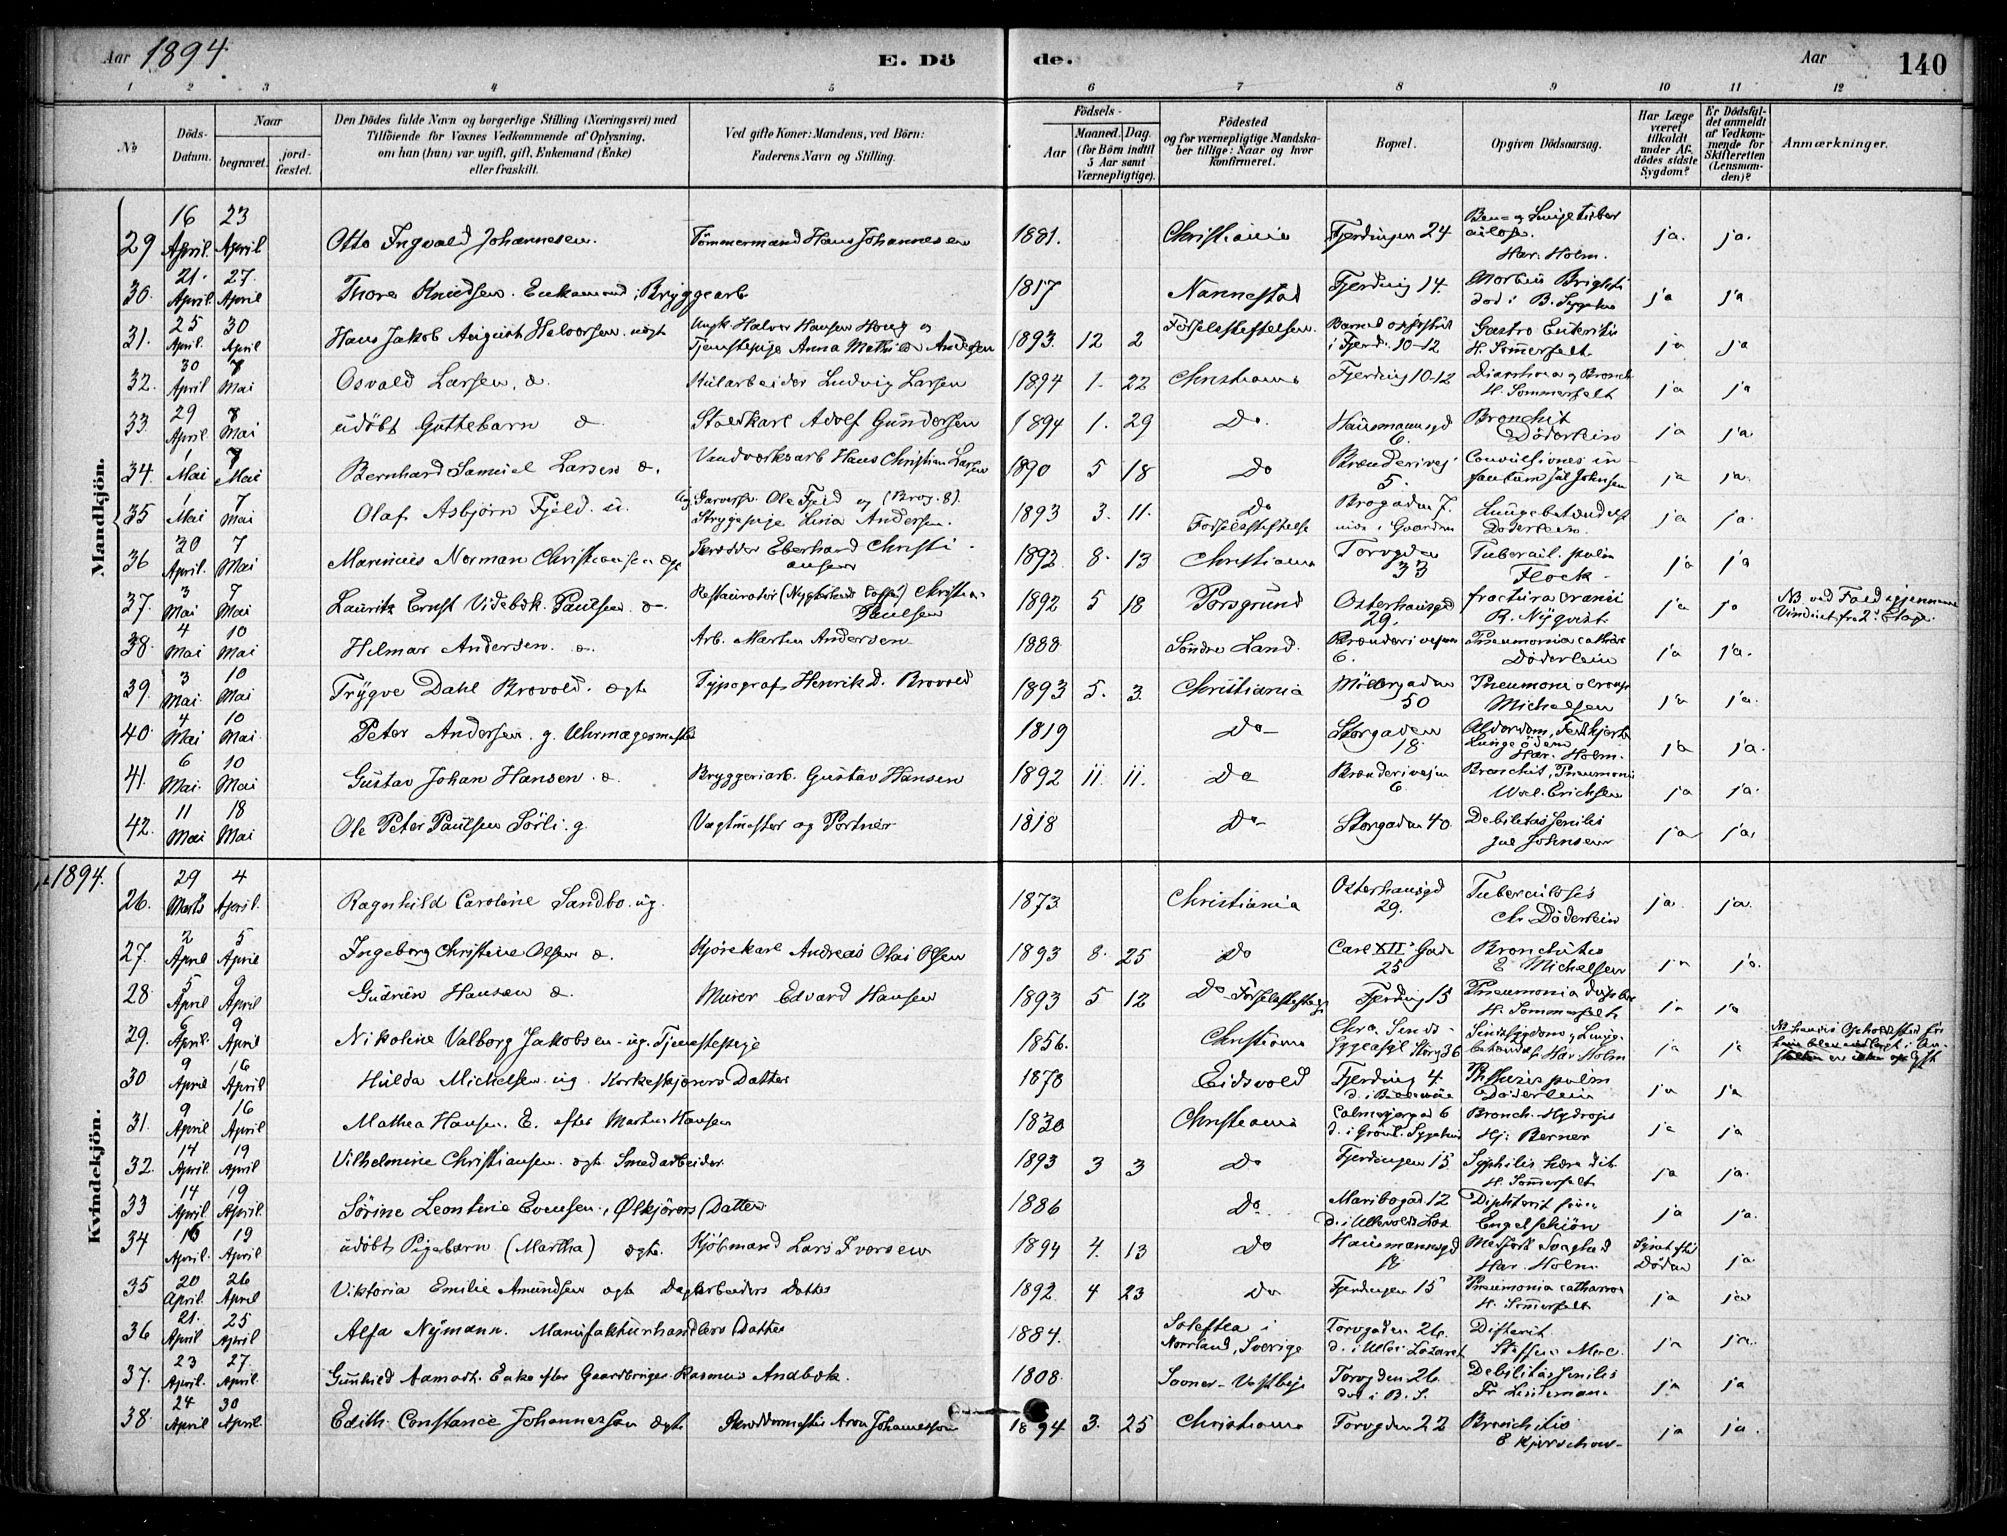 Aar 1894. E. Dö de. Aar 140
1 2 3 4 5 6 7 8 9 10 11 12
No
Döds-Datum.
Naar
begravet.
jord-fæstet.
Den Dödes fulde Navn og borgerlige Stilling (Næringsvei) med
Tilföiende for Voxnes Vedkommende af Oplysning,
om han (hun) var ugift, gift, Enkemand (Enke)
eller fraskilt.
Ved gifte Koner: Mandens, ved Börn:
Faderens Navn og Stilling.
Födsels-
Aar
Maaned. Dag.
(for Börn indtil
5 Aar samt
Værnepligtige).
Födested
og for værnepligtige Mandska-
ber tillige: Naar og hvor
konfirmeret.
Bopæl.
Opgiven Dödsaarsag.
Har Læge
været
tilkaldt
under Af-
dödes sidste
Sygdom?
Er Dödsfal-
det anmeldt
af Vedkom-
mende for
Skifteretten
(Lensman-
den)?
Anmærkninger.
Mandkjön.
29 16 April. 23 April Otto Ingvald Johannesen. Tömmermand Hans Johannesen 1881. Christiania Fjerdingen 24 Ben- og Lunge Tuber culose. Har. Holm. ja. ja.
30. 21. April. 27. April Thore Knudsen. Enkemand, Bryggearb 1817 Nannestad Fjerding 14. Morbus Brighti död i B. Sygehus ja ja
31. 25 April. 30 April Hans Jakob August Halvorsen. uægt Ungk. Halvor Hansen Haug og Tjenestepige Anna Mathilde Andersen 1893. 12 2 Födselsstiftelsen. i Fjerd. 10-12 Gastro Enteritis H. Sommerfelt. ja ja
32. 30 April 7 Mai Osvald Larsen, æ. Ludvig Larsen 1894 1. 22 Christiania Fjerding 10-12 Diarrhoea og Bronch H. Sommerfelt ja ja
33. 29 April. 7 Mai udöbt Guttebarn æ. Staldkarl Adolf Gundersen 1894 1. 29 Do. Hausmannsgd 6. Bronchit Döderlein ja ja
34. 1 Mai 7 Mai Bernhard Samuel Larsen æ. Vandværksarb Hans Christian Larsen 1890 5 18 Do Brænderivej 5. Convulsiones in fantum Jul Johnsen ja ja.
35 1 Mai 7 Mai Olaf Asbjörn Fjeld. u. Ole Fjeld og (Brog. 8). Strygepige Lina Andersen. 1893 3. 11. Do Födselsstiftelse Brogaden 7. Lungebetændelse Döderlein. ja ja.
36 30 April. 7 Mai Marinius Norman Christiansen ægt Skrædder Eberhard Christiansen 1892. 8. 13 Christiania Torvgden 33 Tubercul. pulm Flock. ja ja
37. 3 Mai 7 Mai Lauritz Ernst Videbek Paulsen. æ Restauratør Christian Paulsen 1892 5 18 Porsgrund Osterhausgd 29. fractura cranii R. Nyqvist ja ja NB ved Fald igjennem Vinduet fra 2. Etage.
38. 4 Mai 10 Mai Helmar Andersen. æ. Arb. Martin Andersen 1888 Söndre Land. Brænderivejen 6. Pneumonia cathar Döderlein ja ja.
39. 3 Mai. 10 Mai Trygve Dahl Brovold. ægte Typograf Henrik D. Brovold 1893 5. 3. Christiania Möllergaden 50 Pneumonia croup Michelsen ja ja.
40. 4 Mai 10 Mai Peter Andersen. g. Uhrmagermester 1819 Do Storgaden 18. Alderdom, Fedthjerte Lungeödem Har. Holm. ja ja.
41. 6 Mai. 10 Mai Gustav Johan Hansen. æ. Bryggeriarb. Gustav Hansen 1892 11. 11. Do Brænderivejen 6 Bronchit, Pneumoni Erichsen ja ja.
42. 11 Mai 18 Mai Ole Peter Paulsen Sörli. g. Vagtmester og Portner 1818 Do Storgaden 40. Debilitas senilis Jul Johnsen ja ja.
1894.
Kvindekjön.
26. 29 Marts 4 April. Ragnhild Caroline Sandbo. ug. 1873. Christiania Osterhausgd 29. Tuberculosis Chr. Döderlein ja. ja.
27. 2 April 5 April Ingeborg Christine Olsen æ. Kjörekarl Andreas Olai Olsen 1893 8. 25 Do Carl XII's Gade 25 Bronchites E. Michelsen ja ja.
28. 5 April 9 April Gudrun Hansen æ. Murer Edvard Hansen 1893 5 12 Do Födselsstiftelse Fjerding 15 Pneumonia dupl H. Sommerfelt ja ja
29. 6 April. 9 April Nikoline Valborg Jakobsen - ug. Tjenestepige 1856. Christiania Chra. Sinds-Sygeasyl Storg 36 Sindssygdom, Lungebetændelse Har. Holm ja ja
30 9 April 16 April Hulda Michelsen ug. Korkeskjærers Datter 1878 Eidsvold Fjerding 4. Phthisis pulm Döderlein ja ja
31. 9 April 16 April Mathea Hansen. E. efter Martin Hansen 1830 Christiania Calmeyergad 6 d. i Grönl. Sygehus Bronch. Hydrops Hj. Berner ja ja
32. 14 April. 19 April Vilhelmine Christiansen. ægte Smedarbeider 1893 3 3 Do Fjerdingen 15 Syphilis heredit. H. Sommerfelt ja ja.
33 14 April. 19 April. Sörine Leontine Evensen, Ølkjörers Datter 1886 Do Maribogad 12 d. i Ullevolds Laz Diphtherit Engelschiön ja ja.
34 16 April. 19 April udöbt Pigebarn (Martha) ægte. Kjöbmand Lars Iversen 1894 4. 13 Do Hausmannsgd 18 Medfödt Svaghed Har. Holm Synet efter Döden ja
35 20 April. 26 April Viktoria Emilie Amundsen ægte Dagarbeiders Datter 1892. 4 23 Do Fjerdingen 15 Pneumonia catharral H. Sommerfelt ja ja
36 21. April 25 April Alfa Nymann. Manufakturhandlers Datter 1884. Solleftea i Norrland, Sverige Torvgaden 26. d. i Ullev. Lazaret Difterit ja ja.
37. 23 April. 27. April. Gunhild Aamodt. Enke efter Gaardbruger Rasmus Andbæk. 1808. Sooner - Vestby Torvgden 26. död i B. S. Debilitas senilis Fr. Lindemann ja ja
38. 24 April 30 April. Edith Constance Johannessen ægte Skræddermester Aron Johannessen 1894 3. 25 Christiania Torvgden 22 Bronchitis E Kjerschow ja ja.